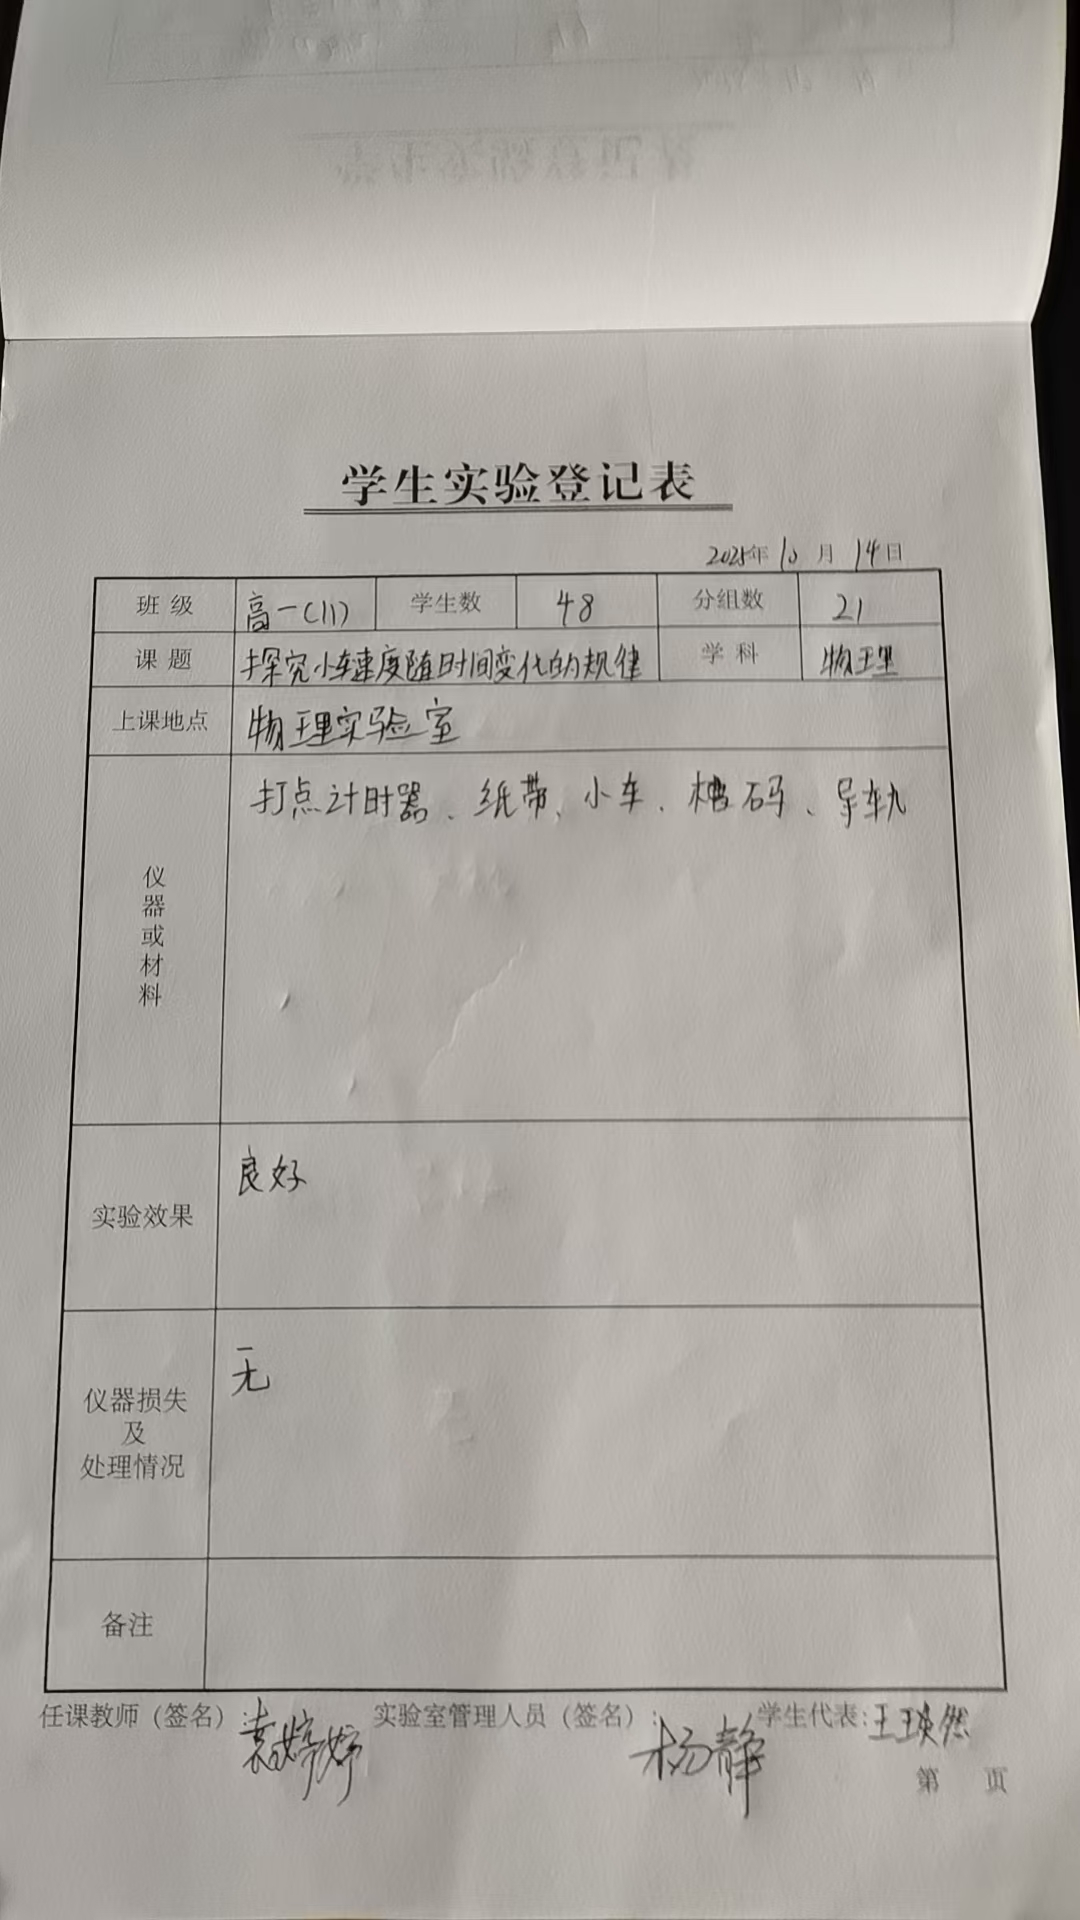 学生实验登记表
2025年10月14日
班级 高一(11) 学生数 48 分组数 21
课题 探究小车速度随时间变化的规律 学科 物理
上课地点 物理实验室
仪器或材料 打点计时器、纸带、小车、槽码、导轨
实验效果 良好
仪器损失及处理情况 无
备注
任课教师（签名）：袁婷婷 实验室管理人员（签名）：杨静 学生代表：王瑛然
第 页